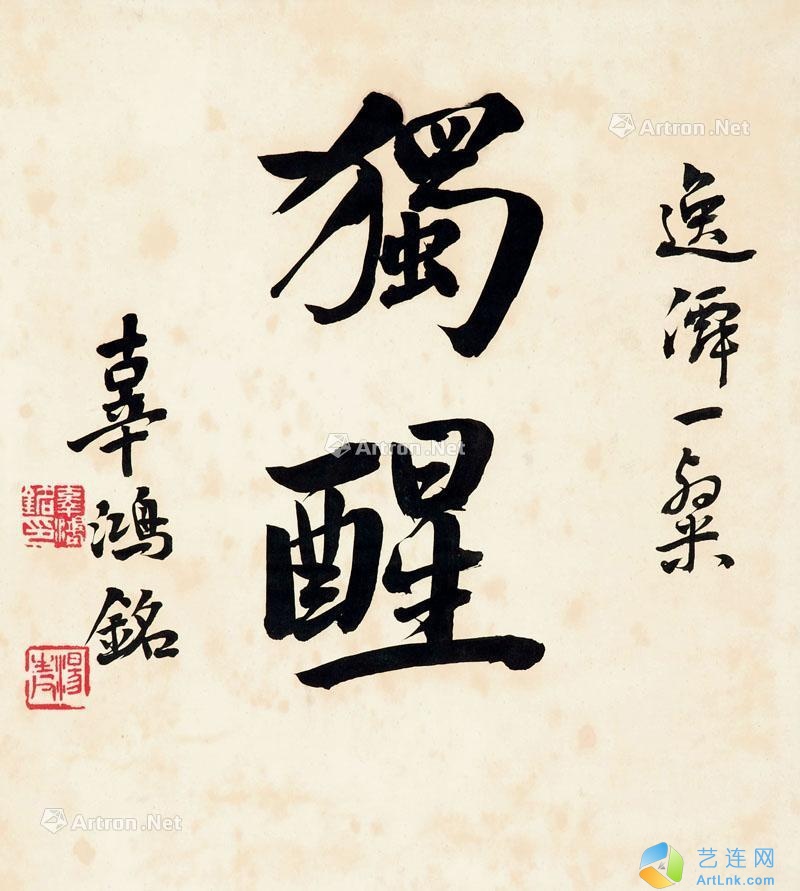 逸潭一粲
獨醒
辜鴻銘
辜鴻銘印
湯生
Artron.Net
Artron.Net
Artron.Net
艺连网
ArtLnk.com